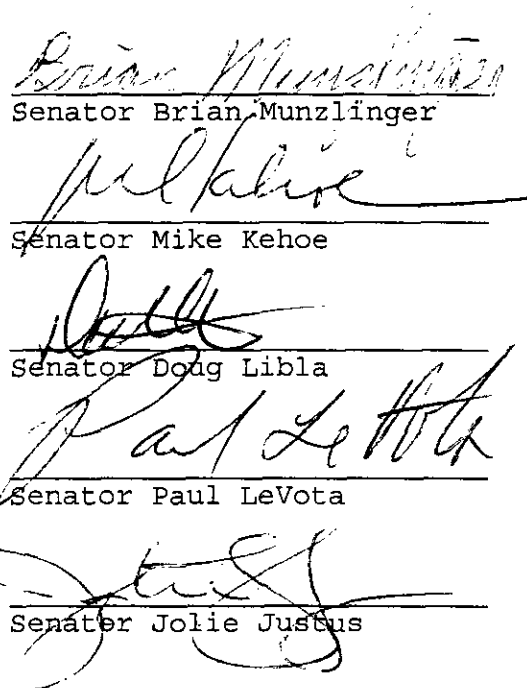 Brian Munzlinger
Senator Brian Munzlinger
Senator Mike Kehoe
Senator Doug Libla
Paul LeVota
Senator Paul LeVota
Senator Jolie Justus